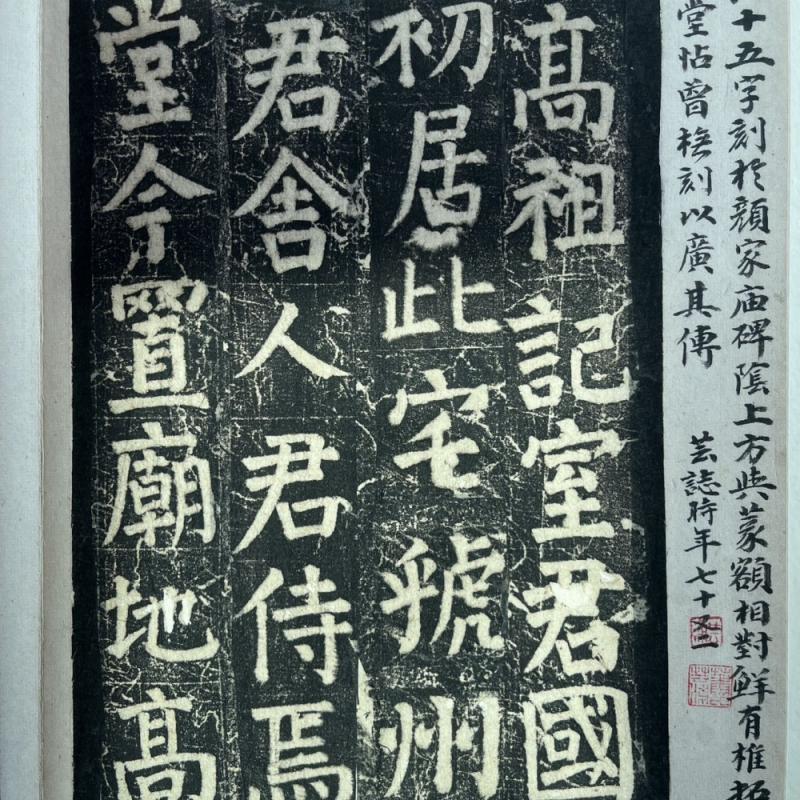 十五字刻於顔家庙碑陰上方與篆額相對鮮有椎
堂帖曾橅刻以廣其傳
芸誌時年七十又二
髙祖記室君國
初居此宅虢州
君舍人君侍焉
堂今置廟地髙